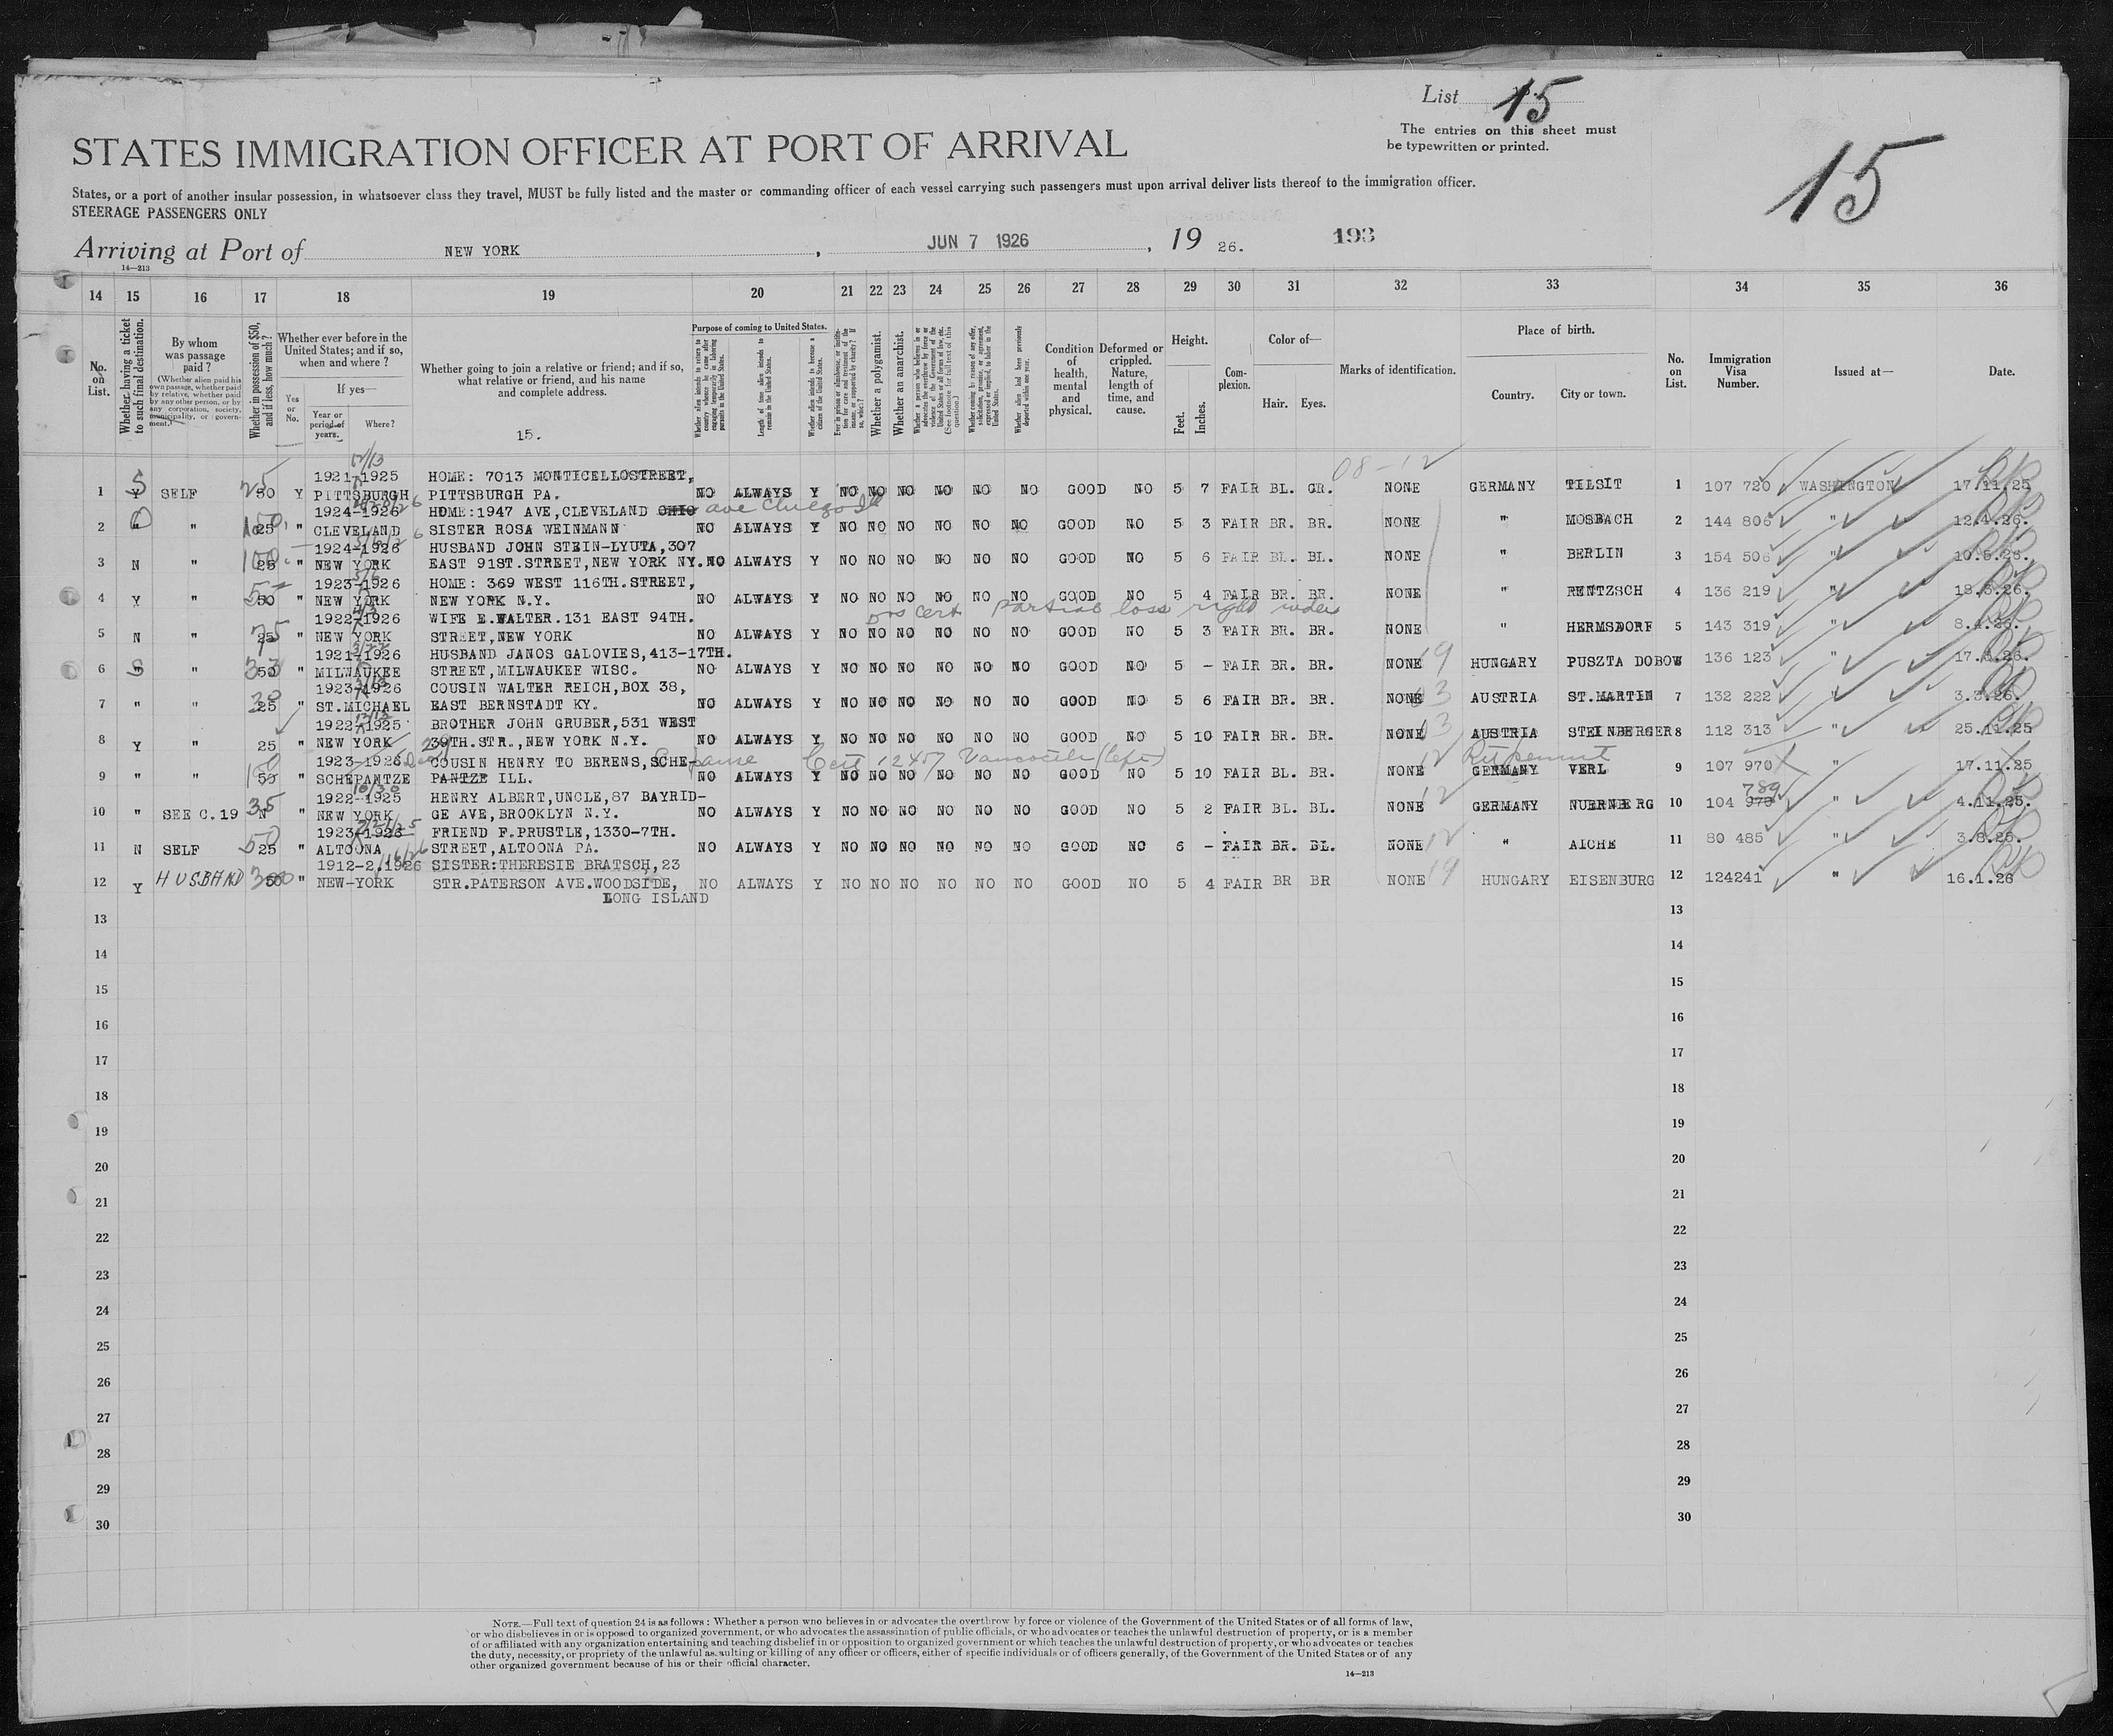 List 15
The entries on this sheet must
be typewritten or printed.
15
STATES IMMIGRATION OFFICER AT PORT OF ARRIVAL
States, or a port of another insular possession, in whatsoever class they travel, MUST be fully listed and the master or commanding officer of each vessel carrying such passengers must upon arrival deliver lists thereof to the immigration officer.
STEERAGE PASSENGERS ONLY
Arriving at Port of NEW YORK, JUN 7 1926, 19 26. 193
14—213
14 15 16 17 18 19 20 21 22 23 24 25 26 27 28 29 30 31 32 33 34 35 36
No. on List.
Whether having a ticket to such final destination.
By whom was passage paid?
(Whether alien paid his own passage, whether paid by relative, whether paid by any other person, or by any corporation, society, municipality, or government.)
Whether in possession of $50, and if less, how much?
Whether ever before in the United States; and if so, when and where?
If yes—
Yes or No.
Year or period of years.
Where?
Whether going to join a relative or friend; and if so, what relative or friend, and his name and complete address.
15.
Purpose of coming to United States.
Whether alien intends to return to country whence he came after engaging temporarily in laboring pursuits in the United States.
Length of time alien intends to remain in the United States.
Whether alien intends to become a citizen of the United States.
Ever in prison or almshouse, or institution for care and treatment of the insane, or supported by charity? If so, which?
Whether a polygamist.
Whether an anarchist.
Whether a person who believes in or advocates the overthrow by force or violence of the Government of the United States or all forms of law, etc. (See footnote for full text of this question.)
Whether coming by reason of any offer, solicitation, promise, or agreement, expressed or implied, to labor in the United States.
Whether alien had been previously deported within one year.
Condition of health, mental and physical.
Deformed or crippled. Nature, length of time, and cause.
Height.
Feet.
Inches.
Complexion.
Color of—
Hair.
Eyes.
Marks of identification.
Place of birth.
Country.
City or town.
No. on List.
Immigration Visa Number.
Issued at—
Date.
08-12
1921-1925 HOME: 7013 MONTICELLOSTREET,
1 Y SELF 50 Y PITTSBURGH PITTSBURGH PA. NO ALWAYS Y NO NO NO NO NO NO GOOD NO 5 7 FAIR BL. GR. NONE GERMANY TILSIT 1 107 720 WASHINGTON 17.11.25
1924-1926 HOME:1947 AVE,CLEVELAND OHIO ave Chicago Ill
2 " " 25 " CLEVELAND SISTER ROSA WEINMANN NO ALWAYS Y NO NO NO NO NO NO GOOD NO 5 3 FAIR BR. BR. NONE " MOSBACH 2 144 806 " 12.4.26.
1924-1926 HUSBAND JOHN STEIN-LYUTA,307
3 N " 25 " NEW YORK EAST 91ST.STREET,NEW YORK NY. NO ALWAYS Y NO NO NO NO NO NO GOOD NO 5 6 FAIR BL. BL. NONE " BERLIN 3 154 506 " 10.5.26.
1923-1926 HOME: 369 WEST 116TH.STREET,
4 Y " 50 " NEW YORK NEW YORK N.Y. NO ALWAYS Y NO NO NO NO NO NO GOOD NO 5 4 FAIR BR. BR. NONE " RENTZSCH 4 136 219 " 18.3.26.
1922-1926 WIFE E.WALTER.131 EAST 94TH. cert partial loss right index
5 N " 25 " NEW YORK STREET,NEW YORK NO ALWAYS Y NO NO NO NO NO NO GOOD NO 5 3 FAIR BR. BR. NONE " HERMSDORF 5 143 319 " 8.4.26.
1921-1926 HUSBAND JANOS GALOVIES,413-17TH.
6 " " 50 " MILWAUKEE STREET,MILWAUKEE WISC. NO ALWAYS Y NO NO NO NO NO NO GOOD NO 5 - FAIR BR. BR. NONE 19 HUNGARY PUSZTA DOBOW 6 136 123 " 17.3.26.
1923-1926 COUSIN WALTER REICH,BOX 38,
7 " " 25 " ST.MICHAEL EAST BERNSTADT KY. NO ALWAYS Y NO NO NO NO NO NO GOOD NO 5 6 FAIR BR. BR. NONE 03 AUSTRIA ST.MARTIN 7 132 222 " 3.3.26.
1922-1925 BROTHER JOHN GRUBER,531 WEST
8 Y " 25 " NEW YORK 39TH.STR.,NEW YORK N.Y. NO ALWAYS Y NO NO NO NO NO NO GOOD NO 5 10 FAIR BR. BR. NONE 3 AUSTRIA STEINBERGER 8 112 313 " 25.11.25
1923-1926 COUSIN HENRY TO BERENS,SCHE- Cert 12457 Varicocele (left)
9 " " 50 " SCHEPANTZE PANTZE ILL. NO ALWAYS Y NO NO NO NO NO NO GOOD NO 5 10 FAIR BL. BR. NONE 12 Ret permit GERMANY VERL 9 107 970 17.11.25
1922-1925 HENRY ALBERT,UNCLE,87 BAYRID- 789
10 " SEE C.19 N 35 " NEW YORK GE AVE,BROOKLYN N.Y. NO ALWAYS Y NO NO NO NO NO NO GOOD NO 5 2 FAIR BL. BL. NONE 12 GERMANY NUERNBERG 10 104 970 " 4.11.25.
1923-1926 FRIEND F.PRUSTLE,1330-7TH.
11 N SELF 50 25 " ALTOONA STREET,ALTOONA PA. NO ALWAYS Y NO NO NO NO NO NO GOOD NO 6 - FAIR BR. BL. NONE 12 " AICHE 11 80 485 " 3.8.25.
1912-2.1926 SISTER:THERESIE BRATSCH,23
12 Y HUSBAND 300 50 " NEW-YORK STR.PATERSON AVE.WOODSIDE, NO ALWAYS Y NO NO NO NO NO NO GOOD NO 5 4 FAIR BR BR NONE 19 HUNGARY EISENBURG 12 124241 " 16.1.26
LONG ISLAND
13 13
14 14
15 15
16 16
17 17
18 18
19 19
20 20
21 21
22 22
23 23
24 24
25 25
26 26
27 27
28 28
29 29
30 30
NOTE.—Full text of question 24 is as follows: Whether a person who believes in or advocates the overthrow by force or violence of the Government of the United States or of all forms of law,
or who disbelieves in or is opposed to organized government, or who advocates the assassination of public officials, or who advocates or teaches the unlawful destruction of property, or is a member
of or affiliated with any organization entertaining and teaching disbelief in or opposition to organized government or which teaches the unlawful destruction of property, or who advocates or teaches
the duty, necessity, or propriety of the unlawful assaulting or killing of any officer or officers, either of specific individuals or of officers generally, of the Government of the United States or of any
other organized government because of his or their official character.
14—213